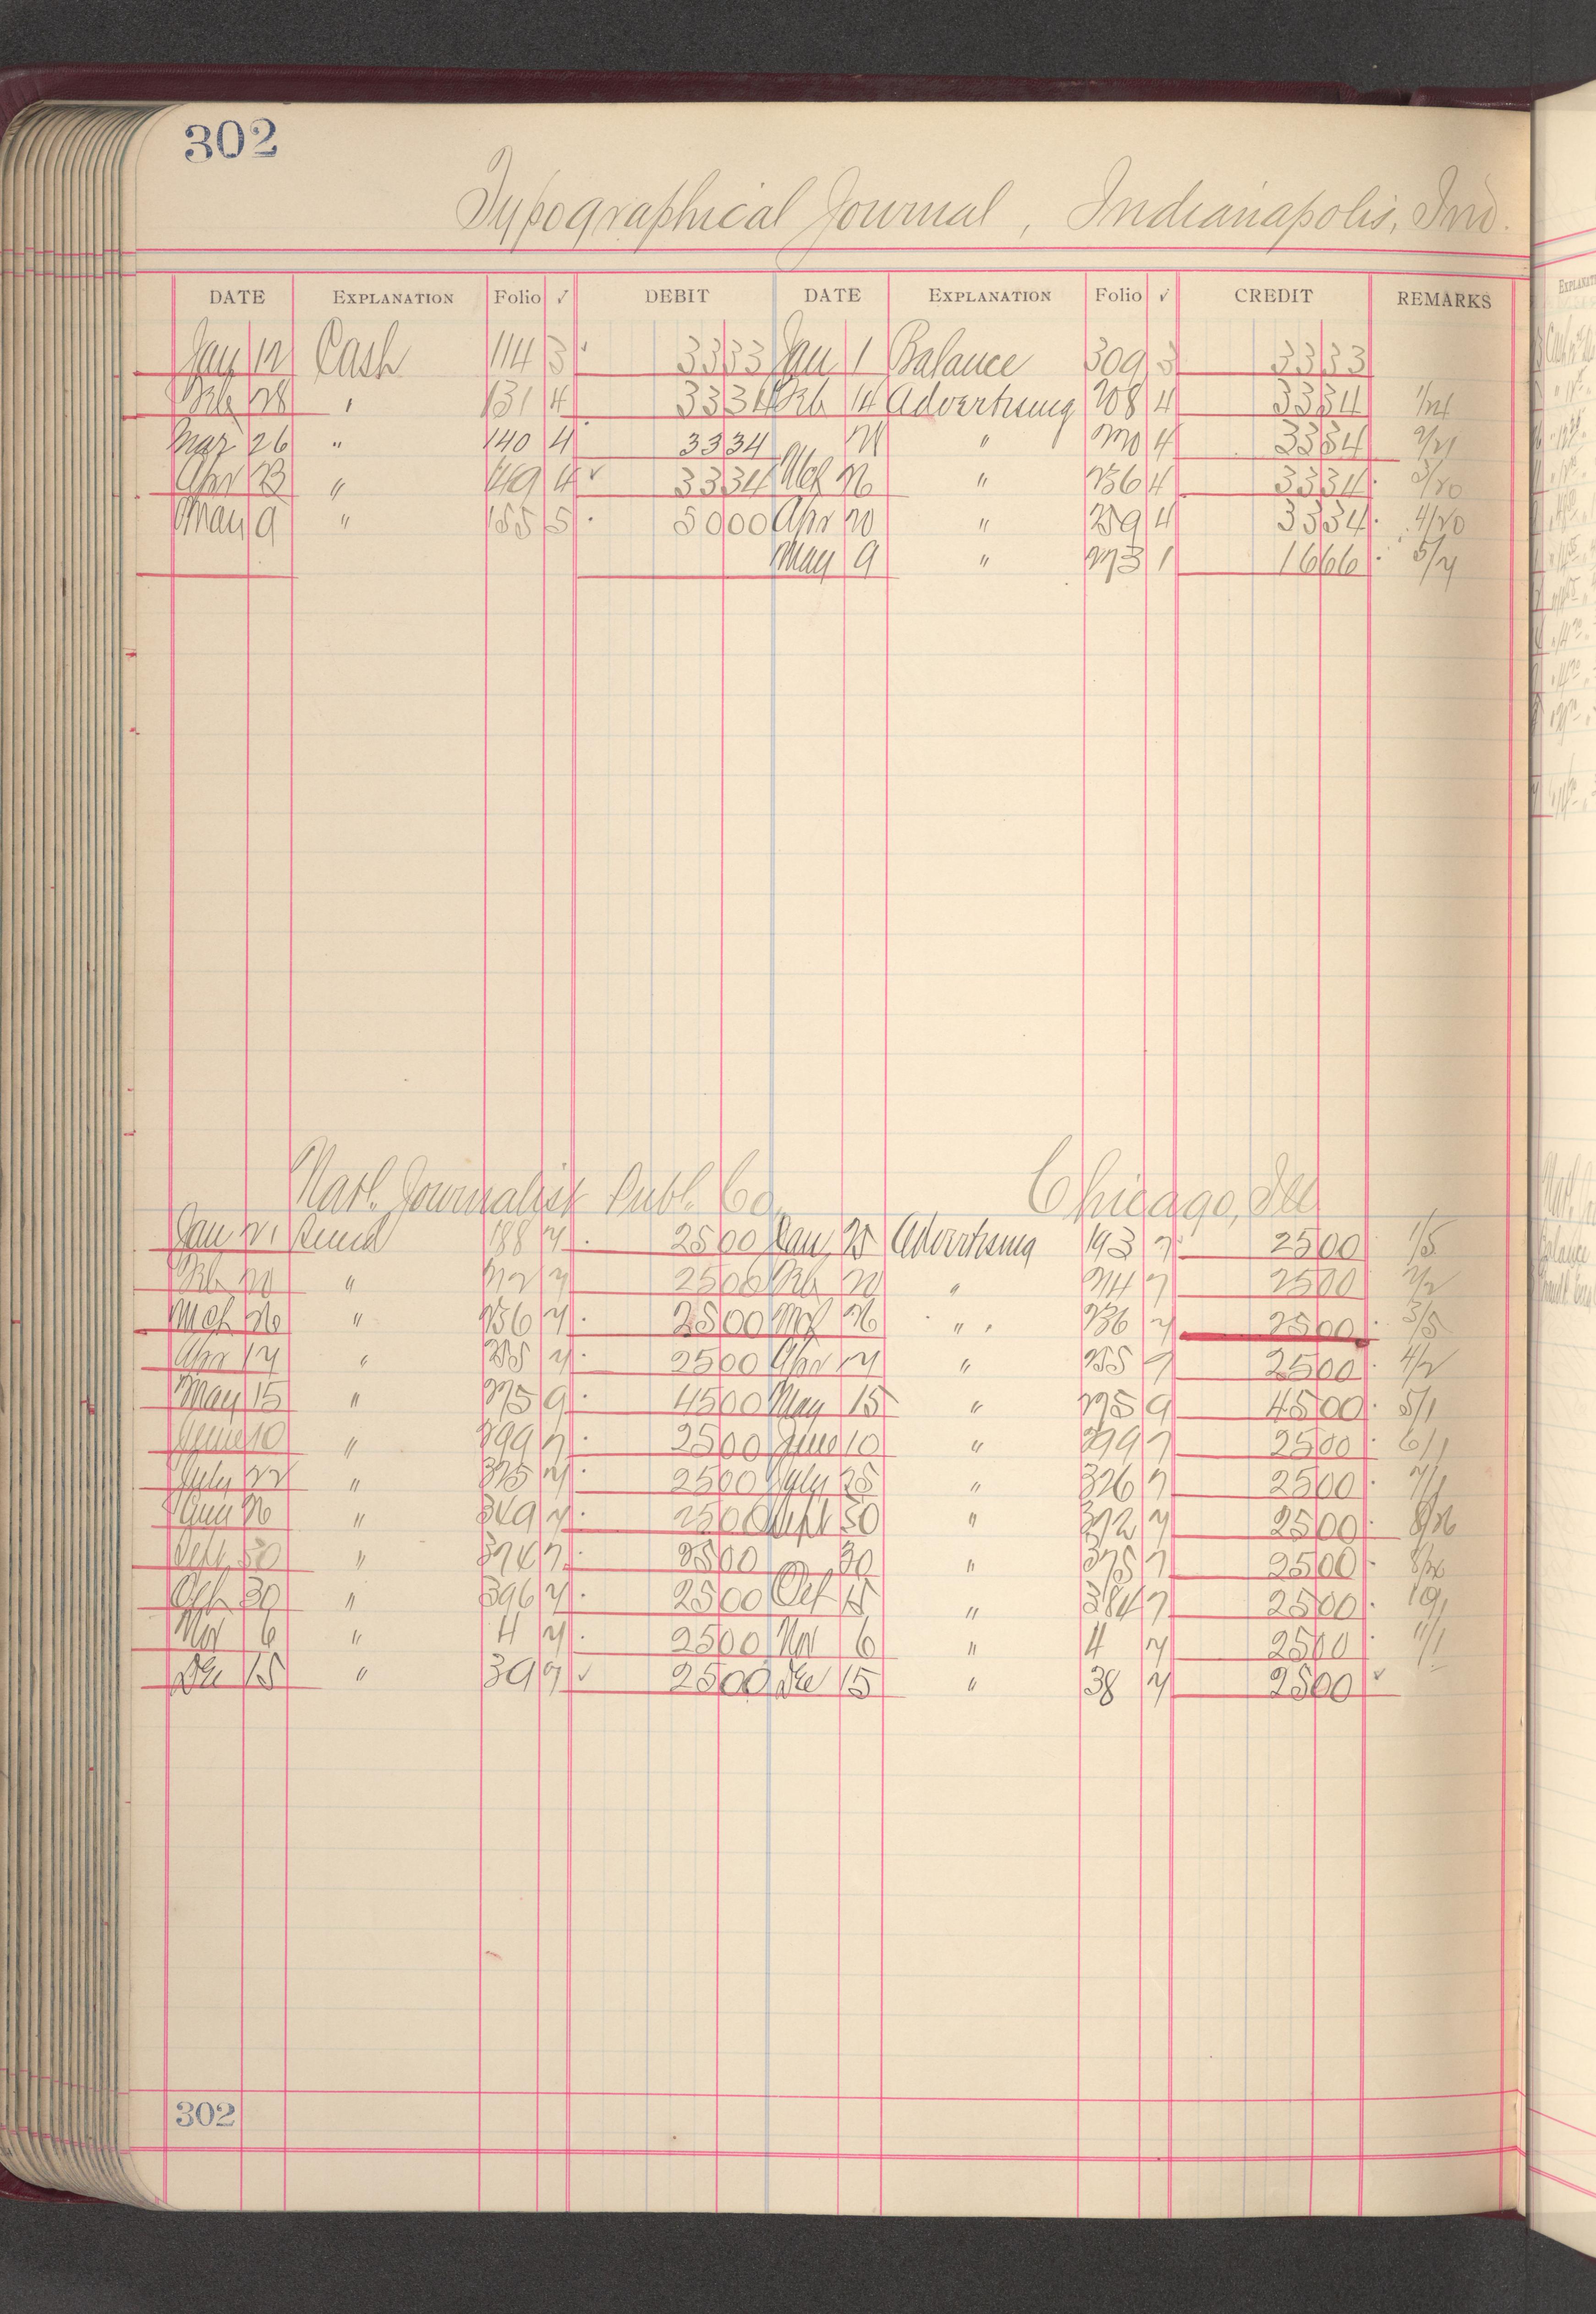 302
Typographical Journal, Indianapolis, Ind.
DATE EXPLANATION Folio ✓ DEBIT DATE EXPLANATION Folio ✓ CREDIT REMARKS
Jan 12 Cash 114 3 33 33 Jan 1 Balance 309 3 33 33
Feb 28 " 131 4 33 34 Feb 14 Advertising 208 4 33 34
Mar 26 " 140 4 33 34 21 " 4 33 34 2/21
Apr 23 " 149 4 33 34 Mch 26 " 236 4 33 34 3/20
May 9 " 155 5 50 00 Apr 20 " 259 4 33 34 4/20
May 9 " 273 1 16 66 5/7
Natl. Journalist Publ. Co. Chicago, Ill
Jan 21 188 7 25 00 Jan 25 Advertising 193 7 25 00 1/5
Feb 20 " 212 7 25 00 Feb 20 " 214 7 25 00 2/2
Mch 26 " 236 7 25 00 Mch 26 " 236 7 25 00 3/5
Apr 17 " 255 7 25 00 Apr 17 " 255 7 25 00 4/2
May 15 " 275 9 45 00 May 15 " 275 9 45 00 5/1
June 10 " 299 7 25 00 June 10 " 299 7 25 00 6/1
July 22 " 325 7 25 00 July 25 " 326 7 25 00 7/1
Aug 26 " 349 7 25 00 Sept 30 " 372 7 25 00 8/26
Sept 30 " 374 7 25 00 30 " 375 7 25 00
Oct 30 " 396 7 25 00 Oct 15 " 384 7 25 00
Nov 6 " 4 7 25 00 Nov 6 " 4 7 25 00 11/1
Dec 15 " 39 7 ✓ 25 00 Dec 15 " 38 7 25 00 ✓
302